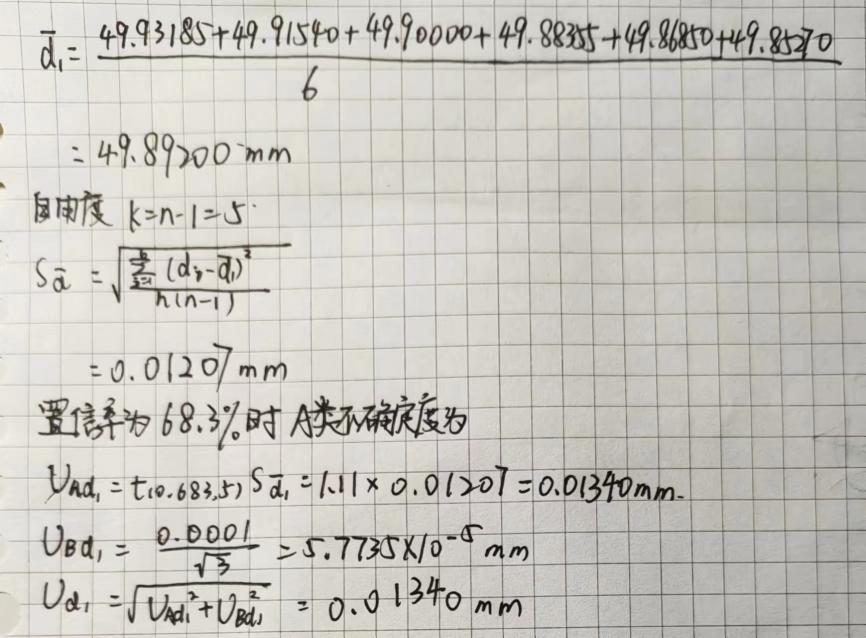 d̄₁ = (49.93185+49.91540+49.90000+49.88355+49.86850+49.85270)/6
= 49.89200 mm
自由度 k=n-1=5
S_d̄ = √(Σ_{i=1}^{6} (dᵢ-d̄₁)² / n(n-1))
= 0.01207 mm
置信率为 68.3% 时 A类不确定度为
U_Ad₁ = t(0.683,5) S_d̄₁ = 1.11 × 0.01207 = 0.01340 mm.
U_Bd₁ = 0.0001/√3 = 5.7735×10⁻⁵ mm
U_d₁ = √(U_Ad₁² + U_Bd₁²) = 0.01340 mm